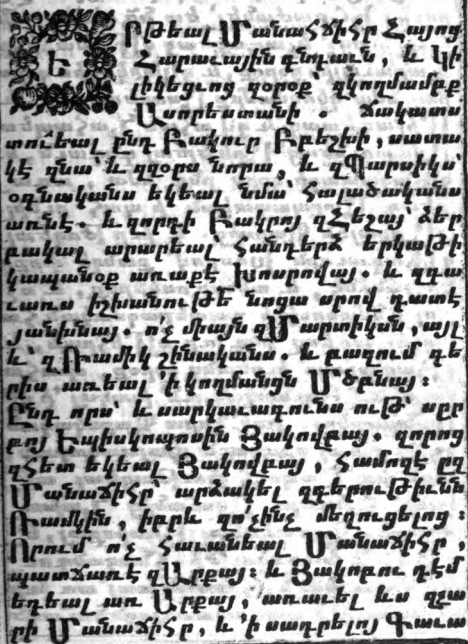 Երթեալ ՄանաՀՃիՀր Հայոց
Հարաւային գնդաւն, և կի
լիկեցւոց զօրօք՝ զկողմամբք
Ասորեստանի . ճակատս
տուեալ ընդ Բակուր Բբեշխի, սատա
կէ զնա՝ և զզօրս նորա, և զՊարսիկս՝
օգնականս եկեալ նմա՝ Հալածականս
առնէ. և զորդի Բակրոյ զՀեշայ՝ ձեր
բակալ արարեալ՝ Հանդերձ երկաթի
կապանօք առաքէ Խոսրովայ. և զգա
ւառս իշխանութե նոցա սրով դատէ
յանինայ. ո՛չ միայն զՄարտիկսն, այլ
և՛ զՌամիկ շինականս. և բազում գե
րիս առեալ ՚ի կողմանցն Մծբնայ :
Ընդ որս՝ և սարկաւագունս ութ՝ սըր
բոյ Եպիսկոպոսին Յակովբայ. զորոց
զՀետ եկեալ Յակովբայ, Համոզէ ըզ
Մանաճիհր՝ արձակել զգերութիւնն
Ռամկին, իբրև զո՛չինչ մեղուցելոց :
Որում ո՛չ Հաւանեալ Մանաճիհր,
պատճառէ զԱրքայ : և Յակոբու դէմ
եդեալ առ Արքայ, առաւել ևս զչա
րի Մանաճիհր, և ՚ի սադրելոյ Գաւա